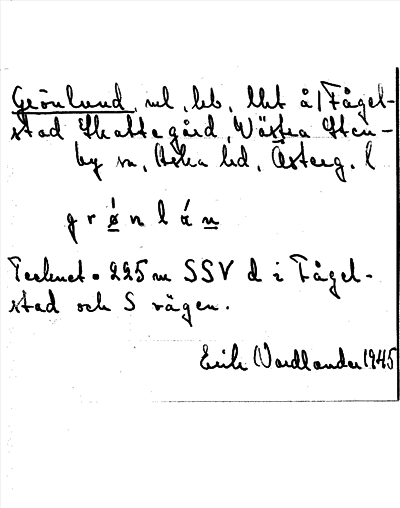 Grönlund, nl, bb, Uht å/Fågel-
stad Skattegård, Västra Sten-
by sn, Aska hd, Österg. l
g r ǿ n l á n
Tecknet ∘ 225 m SSV d i Fågel-
stad och S vägen.
Erik Nordlander 1945